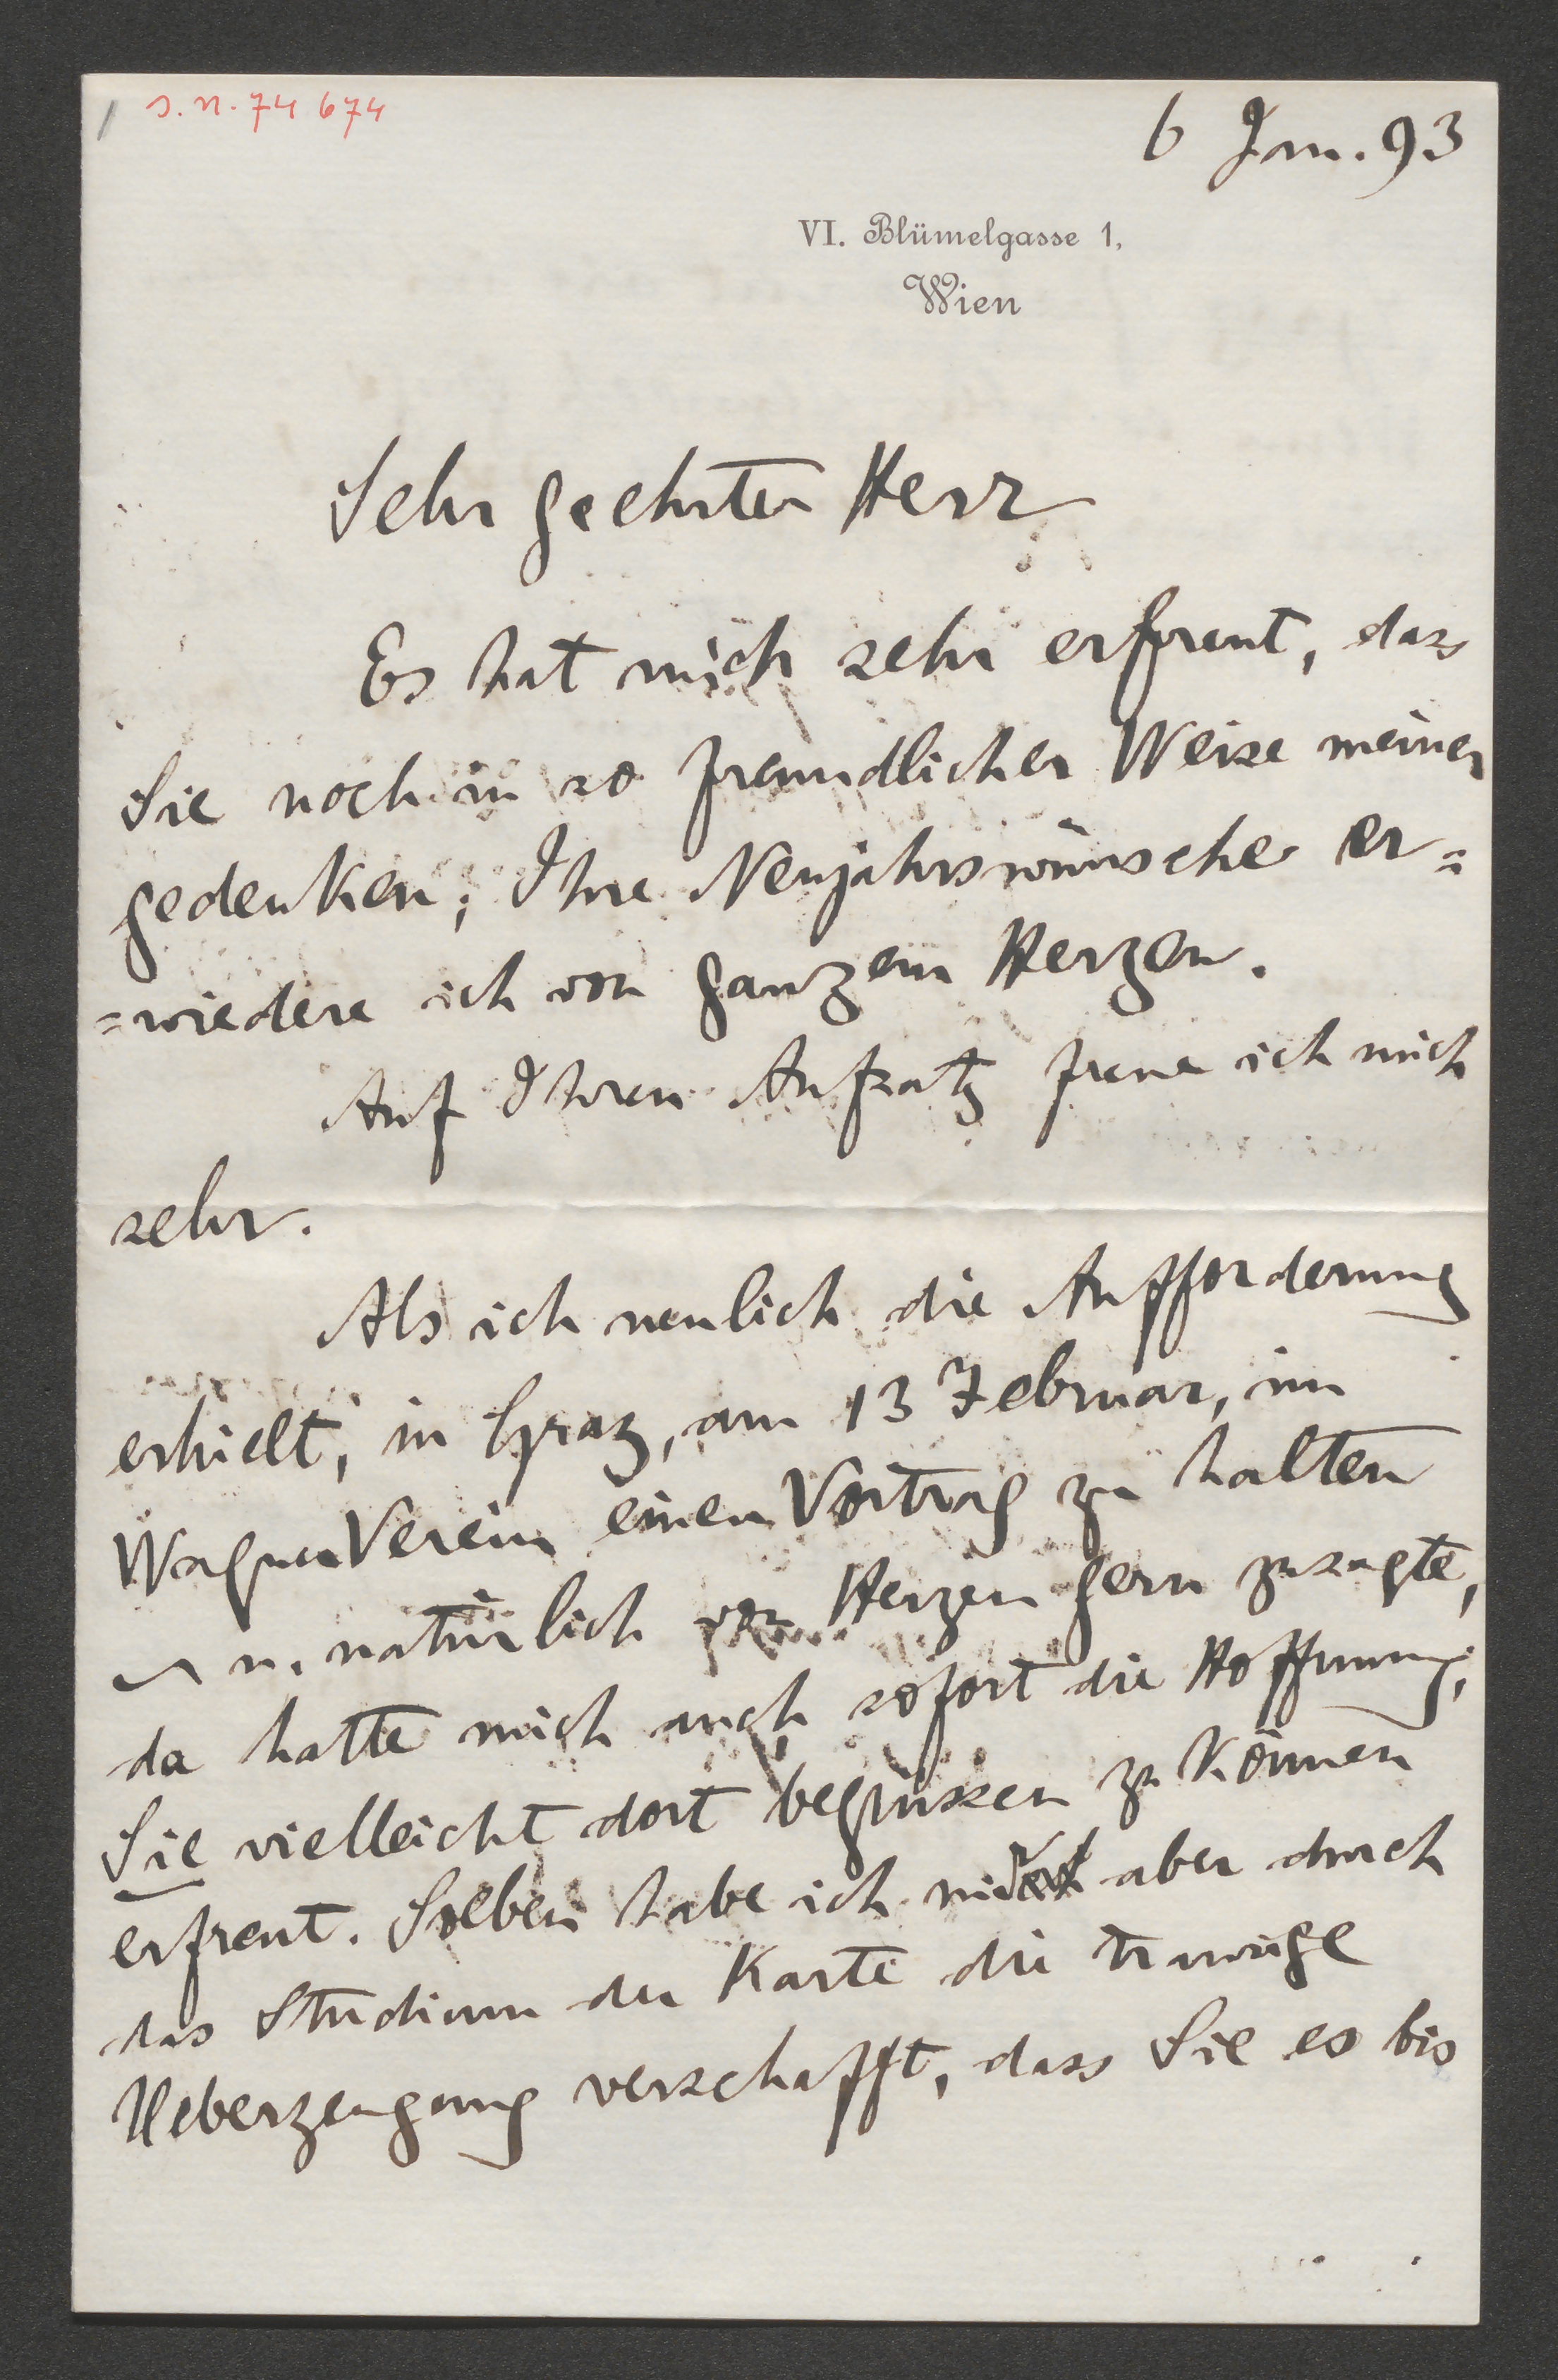 / s. n. 74 674
6 Jan. 93
VI. Blümelgasse 1,
Wien
Sehr geehrter Herr
Es hat mich sehr erfreut, dass
Sie noch in so freundlicher Weise meiner
gedenken; Ihre Neujahrswünsche er=
=wiedere ich von ganzem Herzen.
Auf Ihren Aufsatz freue ich mich
sehr.
Als ich neulich die Aufforderung
erhielt, in Graz, am 13 Februar, im
WagnerVerein einen Vortrag zu halten
u. natürlich von Herzen gern zusagte,
da hatte mich auch sofort die Hoffnung,
Sie vielleicht dort begrüssen zu können
erfreut. Soeben habe ich mir aber durch
das Studium der Karte die traurige
Ueberzeugung verschafft, dass Sie es bis